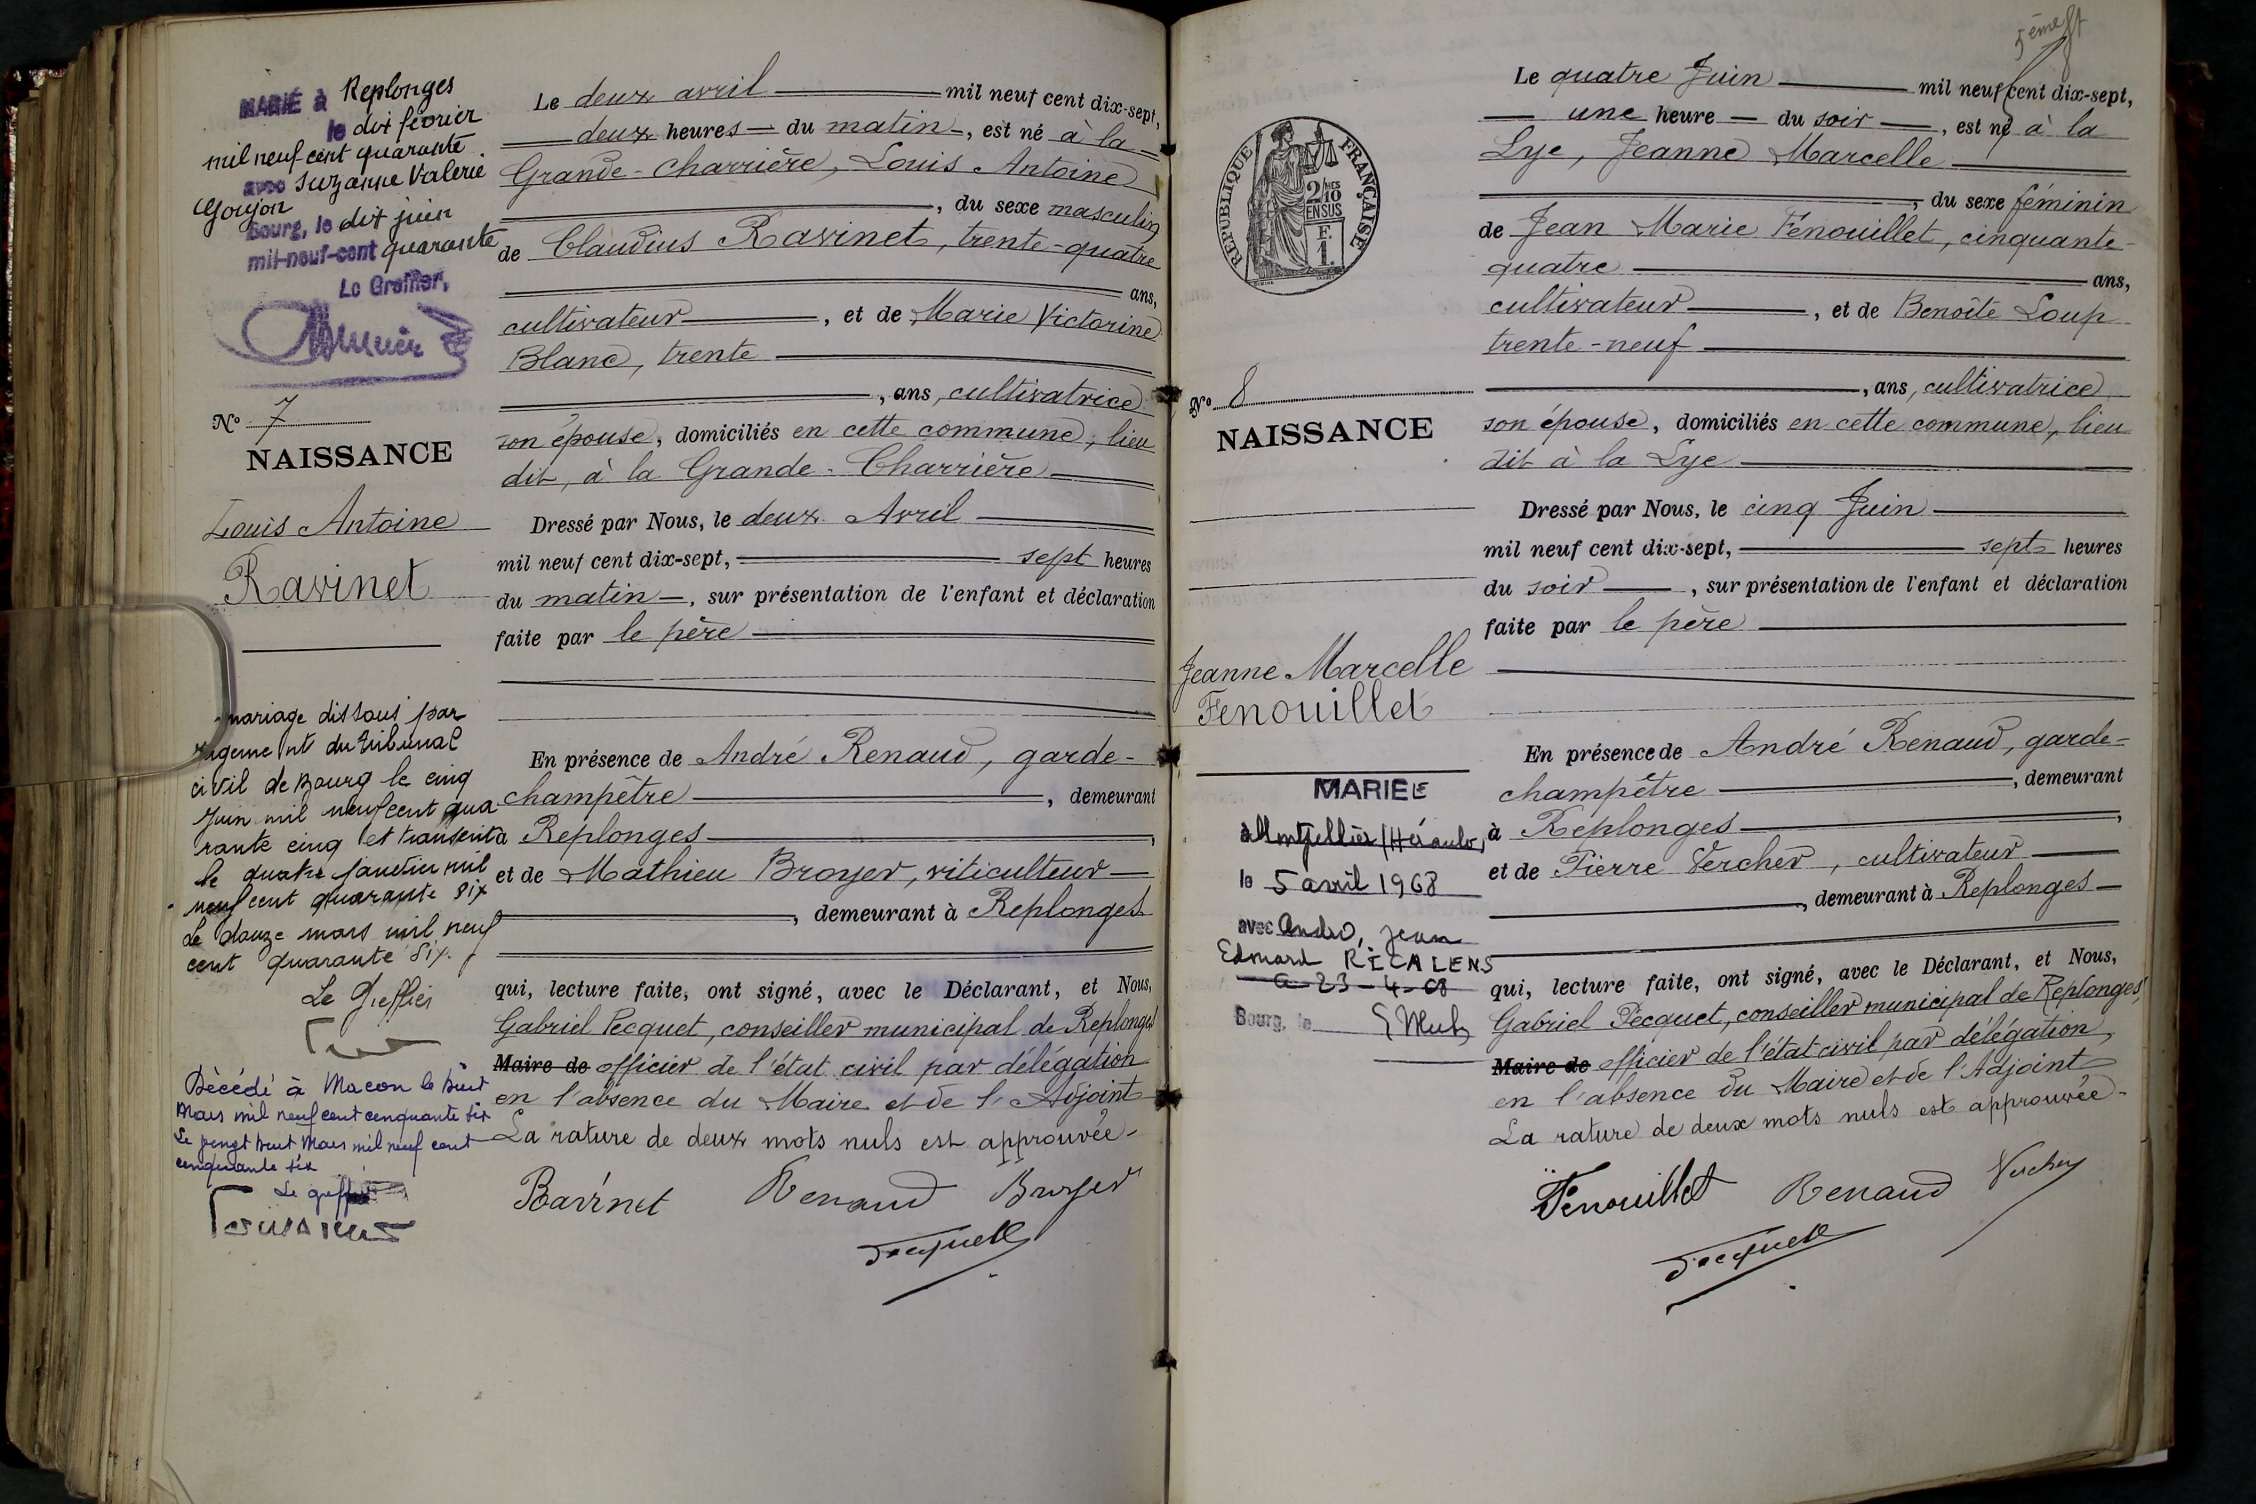 MARIÉ à Replonges
le dix février
mil neuf cent quarante
avec Suzanne Valérie
Goujon
Bourg, le dix juin
mil-neuf-cent quarante
Le Greffier,
N° 7
NAISSANCE
Louis Antoine
Ravinet
mariage dissous par
jugement du tribunal
civil de Bourg le cinq
Juin mil neuf cent qua
rante cinq et transcrit
le quatre janvier mil
neuf cent quarante six
Le douze mars mil neuf
cent quarante six.
Le Greffier
Décédé à Macon le huit
Mars mil neuf cent cinquante six
Le vingt huit Mars mil neuf cent
cinquante six
Le greffier
Le deux avril mil neuf cent dix-sept,
deux heures du matin, est né à la
Grande-Charrière, Louis Antoine
, du sexe masculin
de Claudius Ravinet, trente-quatre
ans,
cultivateur, et de Marie Victorine
Blanc, trente
, ans, cultivatrice
son épouse, domiciliés en cette commune, lieu
dit, à la Grande-Charrière
Dressé par Nous, le deux Avril
mil neuf cent dix-sept, sept heures
du matin, sur présentation de l'enfant et déclaration
faite par le père
En présence de André Renaud, garde-
champêtre, demeurant
à Replonges,
et de Mathieu Broyer, viticulteur
, demeurant à Replonges
qui, lecture faite, ont signé, avec le Déclarant, et Nous,
Gabriel Pecquet, conseiller municipal de Replonges
Maire de officier de l'état civil par délégation
en l'absence du Maire et de l'Adjoint
La rature de deux mots nuls est approuvée-
Ravinet Renaud Broyer
Pecquet
5ème ft
RÉPUBLIQUE FRANÇAISE
2/10
EN SUS
F.
1.
N° 8
NAISSANCE
Jeanne Marcelle
Fenouillet
MARIÉE
à Montpellier (Hérault),
le 5 avril 1968
avec André, Jean
Edmard RECALENS
23-4-68
Bourg, le
Le quatre Juin mil neuf cent dix-sept,
une heure du soir, est né à la
Lye, Jeanne Marcelle
, du sexe féminin
de Jean Marie Fenouillet, cinquante-
quatre ans,
cultivateur, et de Benoîte Loup
trente-neuf
, ans, cultivatrice
son épouse, domiciliés en cette commune, lieu
dit à la Lye
Dressé par Nous, le cinq Juin
mil neuf cent dix-sept, sept heures
du soir, sur présentation de l'enfant et déclaration
faite par le père
En présence de André Renaud, garde-
champêtre, demeurant
à Replonges,
et de Pierre Vercher, cultivateur
, demeurant à Replonges
qui, lecture faite, ont signé, avec le Déclarant, et Nous,
Gabriel Pecquet, conseiller municipal de Replonges,
Maire de officier de l'état civil par délégation,
en l'absence du Maire et de l'Adjoint
La rature de deux mots nuls est approuvée-
Fenouillet Renaud Vercher
Pecquet